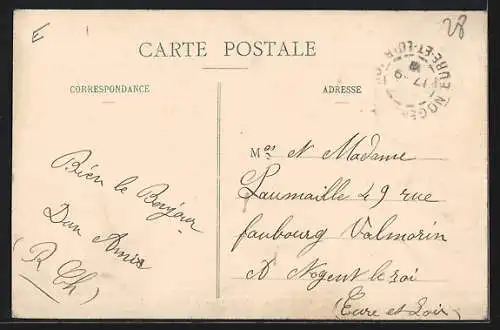 E
28
CARTE POSTALE
CORRESPONDANCE
ADRESSE
NOGENT
EURE-ET-LOIR
17 - 9
Bien le Bonjour
Dun Amis
(R Ch)
Mr et Madame
Laumaille 49 rue
faubourg Valmorin
A Nogent le roi
(Eure et Loir)